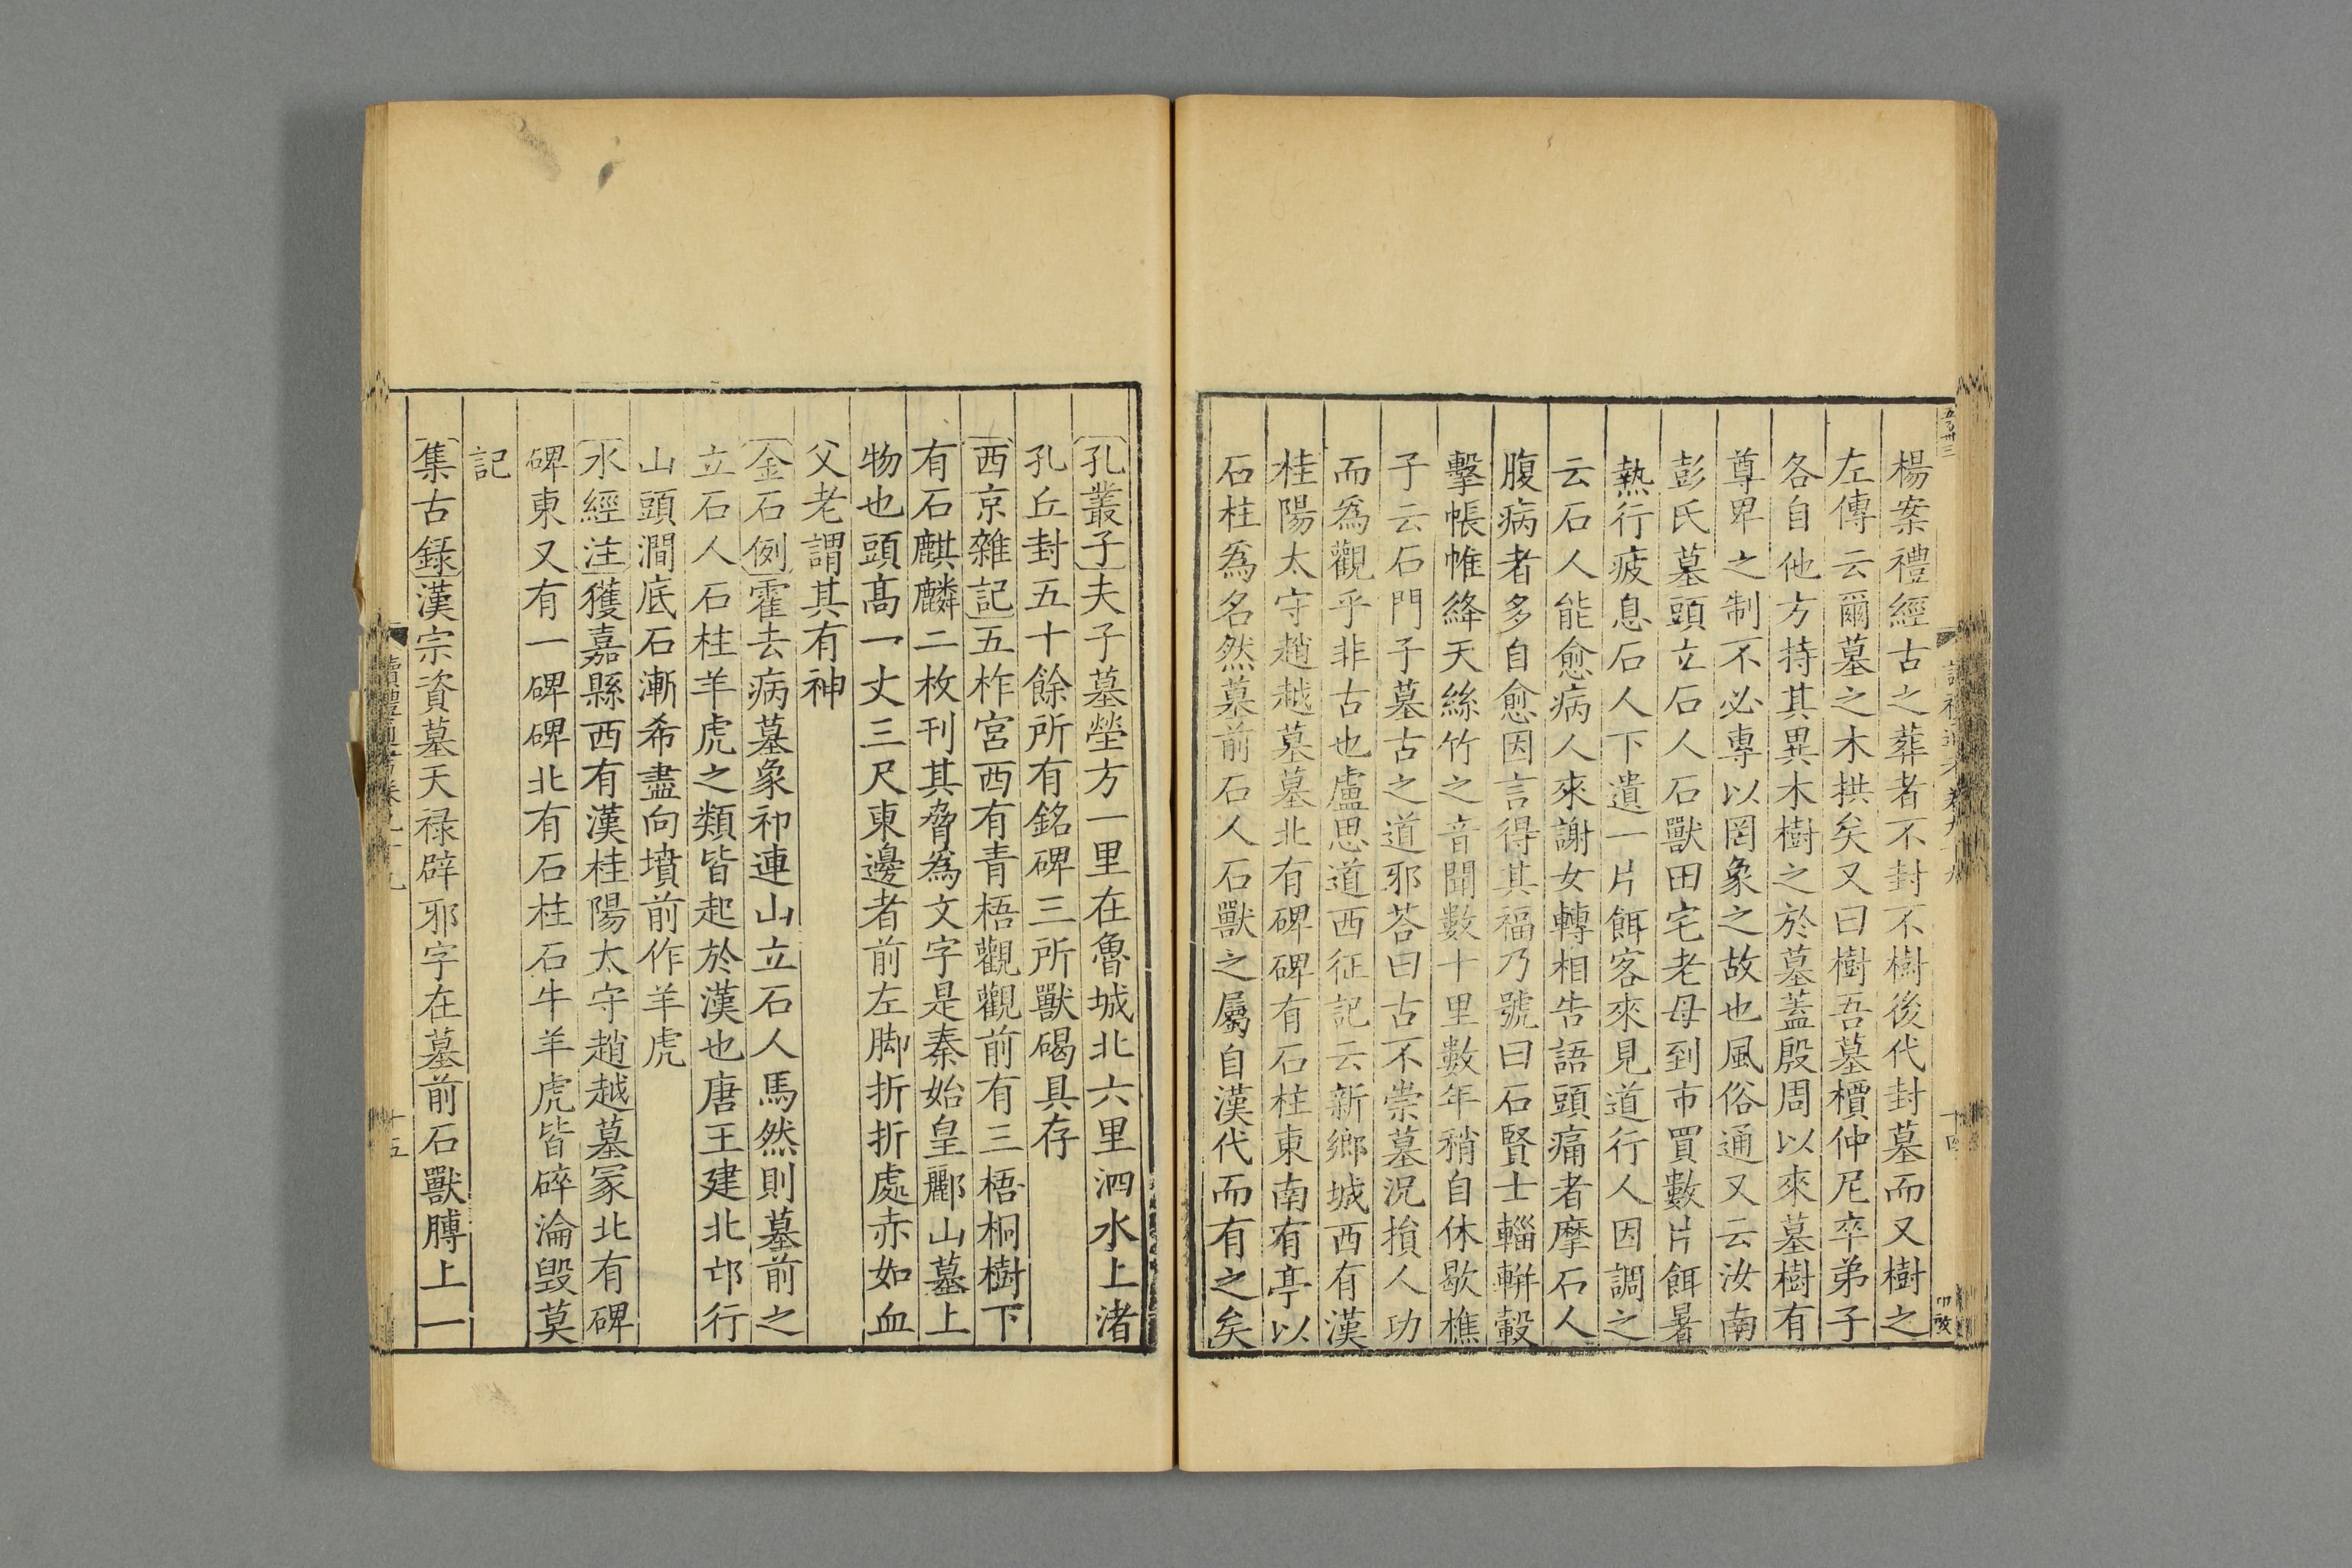 楊案禮經古之葬者不封不樹後代封墓而又樹之
左傳云爾墓之木拱矣又曰樹吾墓檟仲尼卒弟子
各自他方持其異木樹之於墓蓋殷周以來墓樹有
尊卑之制不必專以罔象之故也風俗通又云汝南
彭氏墓頭立石人石獸田宅老母到市買數片餌暑
熱行疲息石人下遺一片餌客來見道行人因調之
云石人能愈病人來謝女轉相告語頭痛者摩石人
腹病者多自愈因言得其福乃號曰石賢士輜軿轂
擊帳帷絳天絲竹之音聞數十里數年稍自休歇樵
子云石門子墓古之道邪荅曰古不崇墓況損人功
而爲觀乎非古也盧思道西征記云新鄉城西有漢
桂陽太守趙越墓墓北有碑碑有石柱東南有亭以
石柱爲名然墓前石人石獸之屬自漢代而有之矣
孔叢子夫子墓塋方一里在魯城北六里泗水上渚
孔丘封五十餘所有銘碑三所獸碣具存
西京雜記五柞宮西有青梧觀觀前有三梧桐樹下
有石麒麟二枚刊其脅爲文字是秦始皇酈山墓上
物也頭高一丈三尺東邊者前左脚折折處赤如血
父老謂其有神
金石例霍去病墓象祁連山立石人馬然則墓前之
立石人石柱羊虎之類皆起於漢也唐王建北邙行
山頭澗底石漸希盡向墳前作羊虎
水經注獲嘉縣西有漢桂陽太守趙越墓冢北有碑
碑東又有一碑碑北有石柱石牛羊虎皆碎淪毀莫
記
集古錄漢宗資墓天祿辟邪字在墓前石獸膊上一
十五